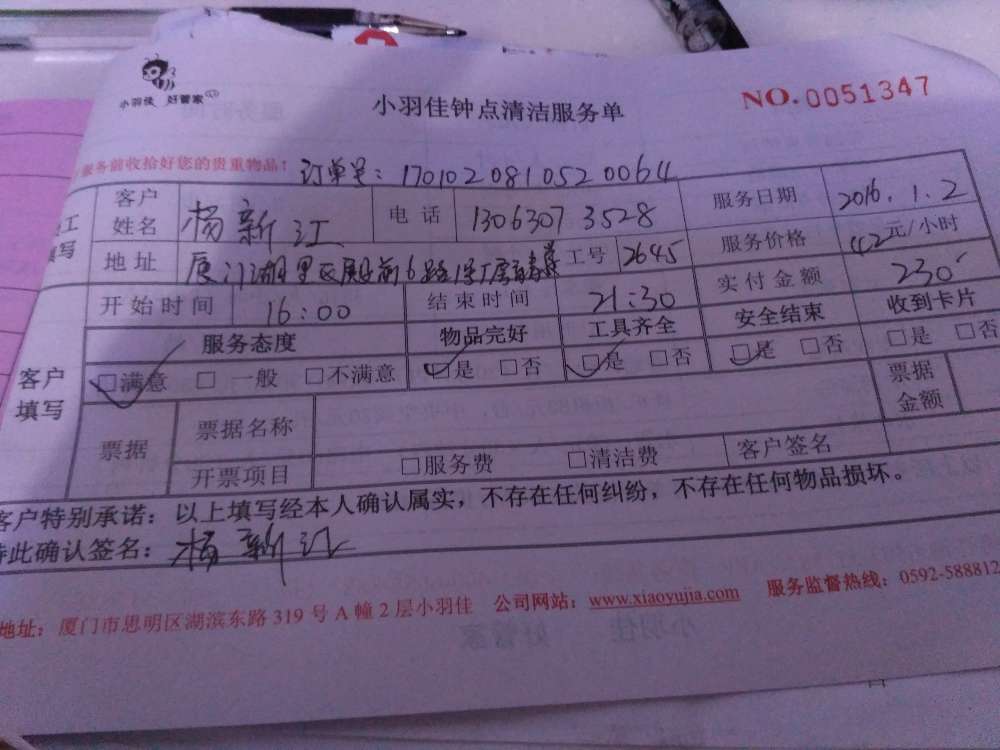 小羽佳 好管家
小羽佳钟点清洁服务单
NO.0051347
服务前收拾好您的贵重物品！
订单号：170102081052 0064
客户姓名 杨新江 电话 1306307 3528 服务日期 2016.1.2
填写 地址 厦门湖里区殿前6路1号厂房 工号 2645 服务价格 42元/小时
开始时间 16:00 结束时间 21:30 实付金额 230
服务态度 物品完好 工具齐全 安全结束 收到卡片
客户填写 □满意 □一般 □不满意 □是 □否 □是 □否 □是 □否 □是 □否
票据 票据名称 票据金额
开票项目 □服务费 □清洁费 客户签名
客户特别承诺：以上填写经本人确认属实，不存在任何纠纷，不存在任何物品损坏。
特此确认签名：杨新江
地址：厦门市思明区湖滨东路319号A幢2层小羽佳 公司网站：www.xiaoyujia.com 服务监督热线：0592-588812